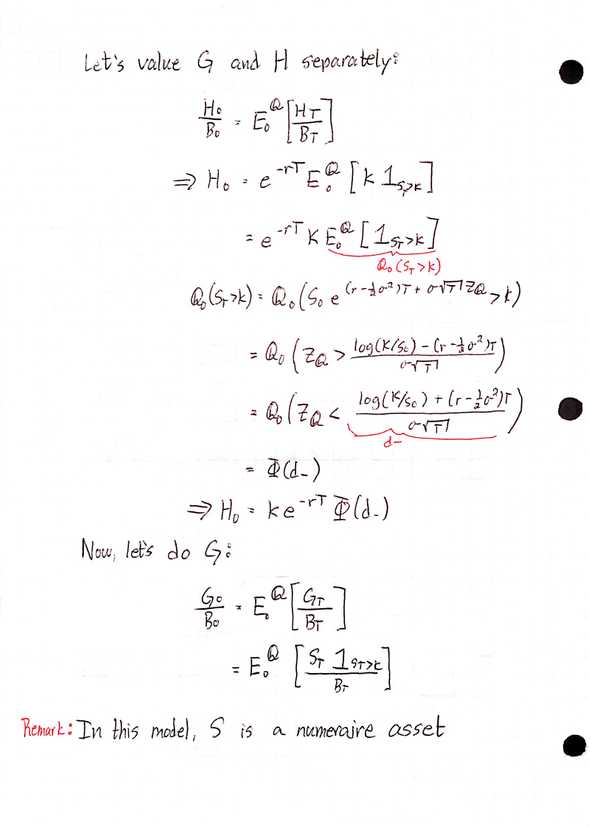 Let's value G and H separately:
H₀/B₀ = E₀^Q [H_T/B_T]
⇒ H₀ = e^{-rT} E₀^Q [K 1_{S_T>K}]
= e^{-rT} K E₀^Q [1_{S_T>K}]
Q₀(S_T>K)
Q₀(S_T>K) = Q₀(S₀ e^{(r-½σ²)T + σ√T Z_Q} > K)
= Q₀(Z_Q > (log(K/S₀) - (r-½σ²)T)/(σ√T))
= Q₀(Z_Q < (log(K/S₀) + (r-½σ²)T)/(σ√T))
d₋
= Φ(d₋)
⇒ H₀ = K e^{-rT} Φ(d₋)
Now, let's do G:
G₀/B₀ = E₀^Q [G_T/B_T]
= E₀^Q [S_T 1_{S_T>K}/B_T]
Remark: In this model, S is a numeraire asset